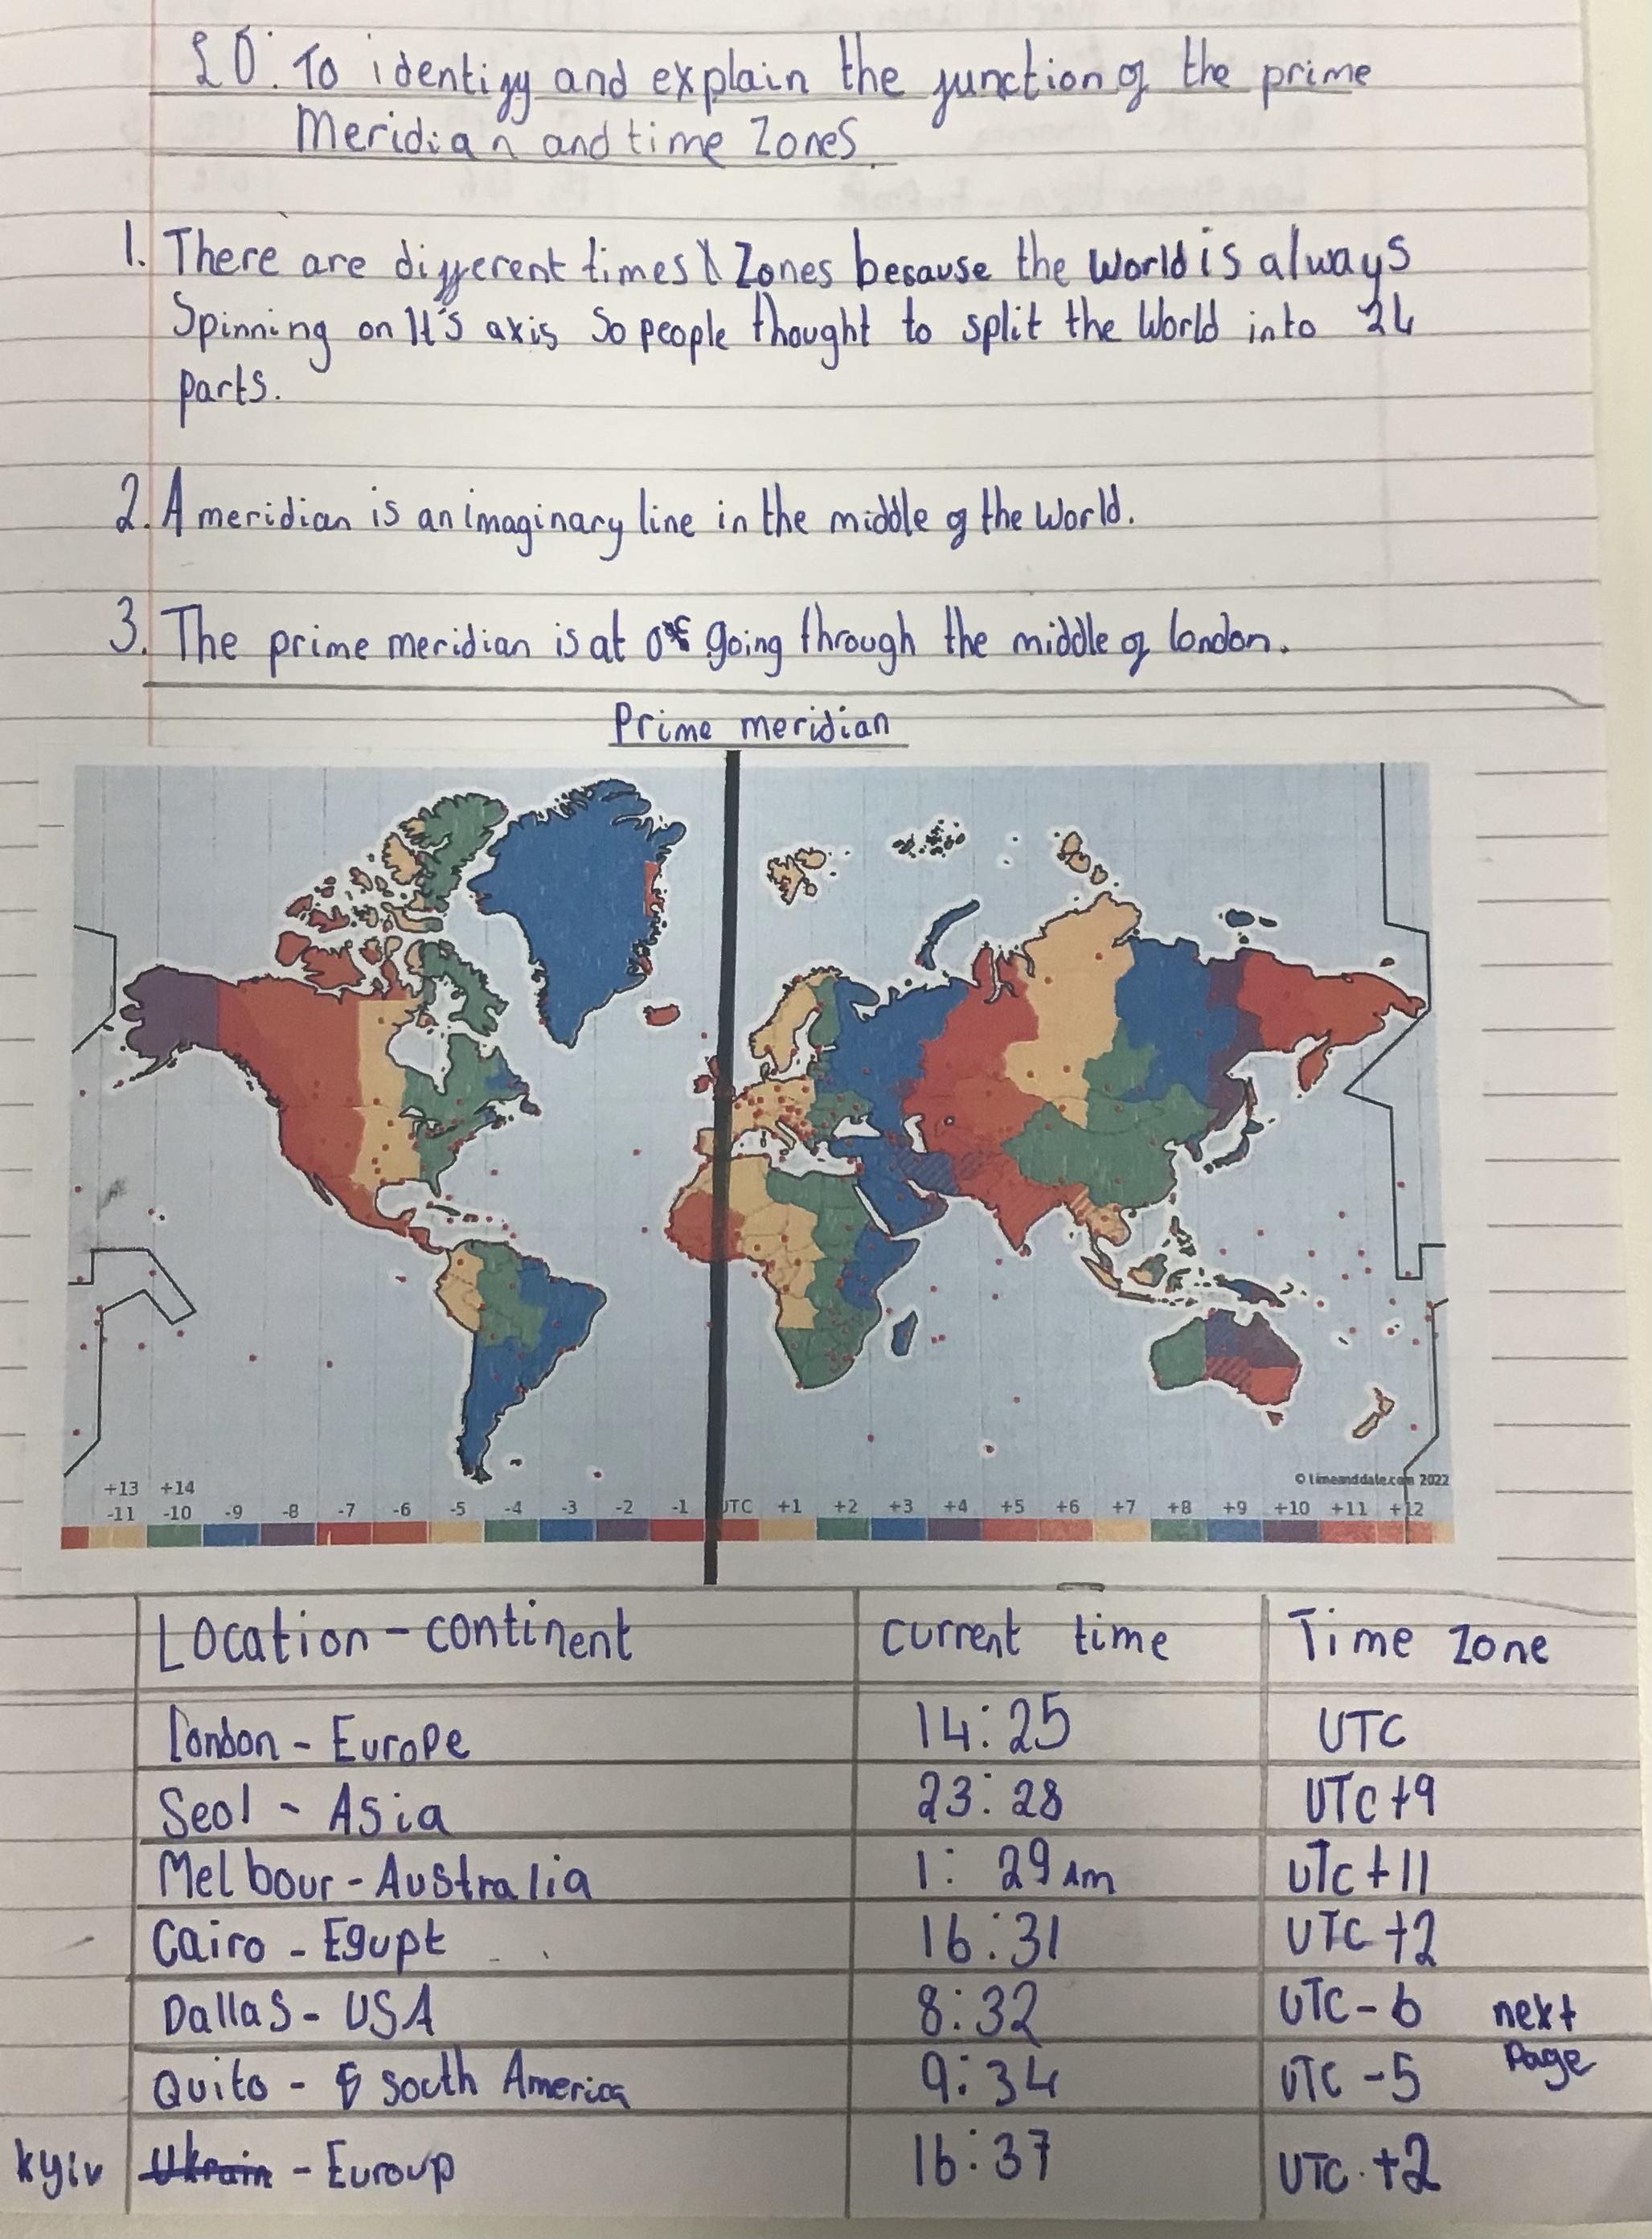 LO: To identify and explain the function of the prime
Meridian and time Zones.
1. There are different times Zones because the World is always
Spinning on It's axis So people thought to split the World into 24
parts.
2. A meridian is an imaginary line in the middle of the World.
3. The prime meridian is at 0° going through the middle of london.
Prime meridian
© timeanddate.com 2022
+13 +14
-11 -10 -9 -8 -7 -6 -5 -4 -3 -2 -1 UTC +1 +2 +3 +4 +5 +6 +7 +8 +9 +10 +11 +12
Location - continent Current time Time Zone
London - Europe 14:25 UTC
Seol - Asia 23:28 UTC +9
Melbour - Australia 1:29 Am UTC +11
Cairo - Egupt 16:31 UTC +2
Dallas - USA 8:32 UTC - 6 next
Page
Quito - South America 9:34 UTC -5
Kyiv Ukrain - Euroup 16:37 UTC +2